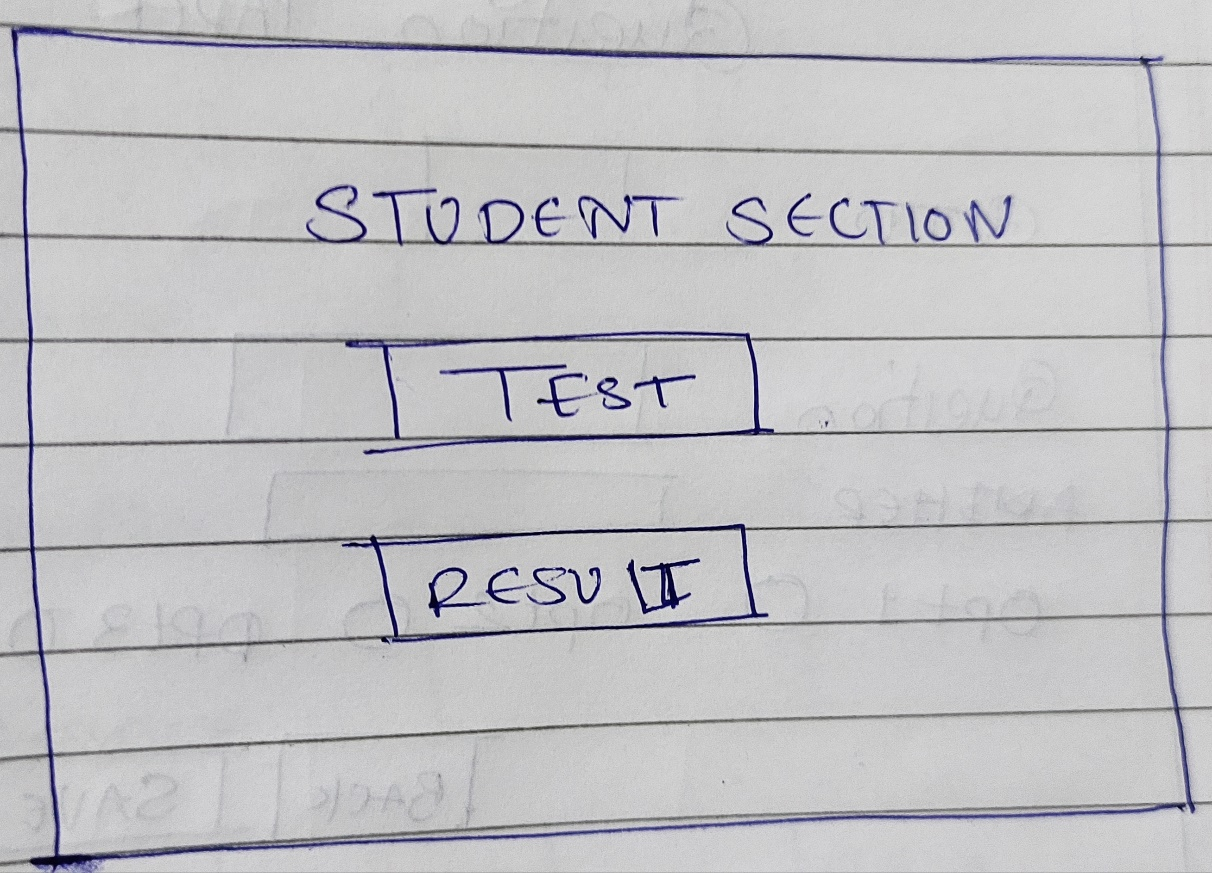 STUDENT SECTION
TEST
RESULT